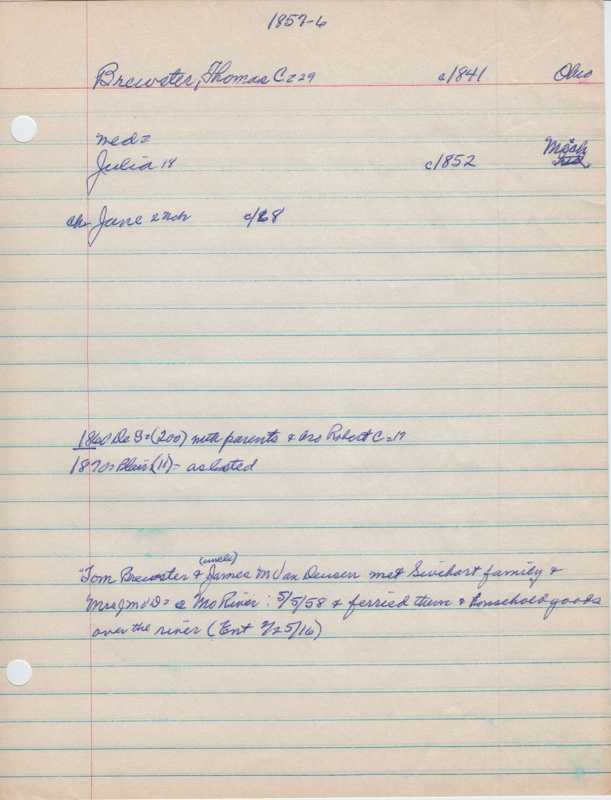 1857-6
Brewster, Thomas C = 29 c/1841 Ohio
med =
Julia 18 c/1852 Mich
ch- Jane 2 mch c/68
1860 De S = (200) with parents & bro Robert C = 17
1870 = Blair (11) = as listed
(uncle)
"Tom Brewster & James M Van Deusen met Swihart family &
Mrs J M V D = @ Mo River: 5/5/58 & ferried them & household goods
over the river (Ent 2/25/16)